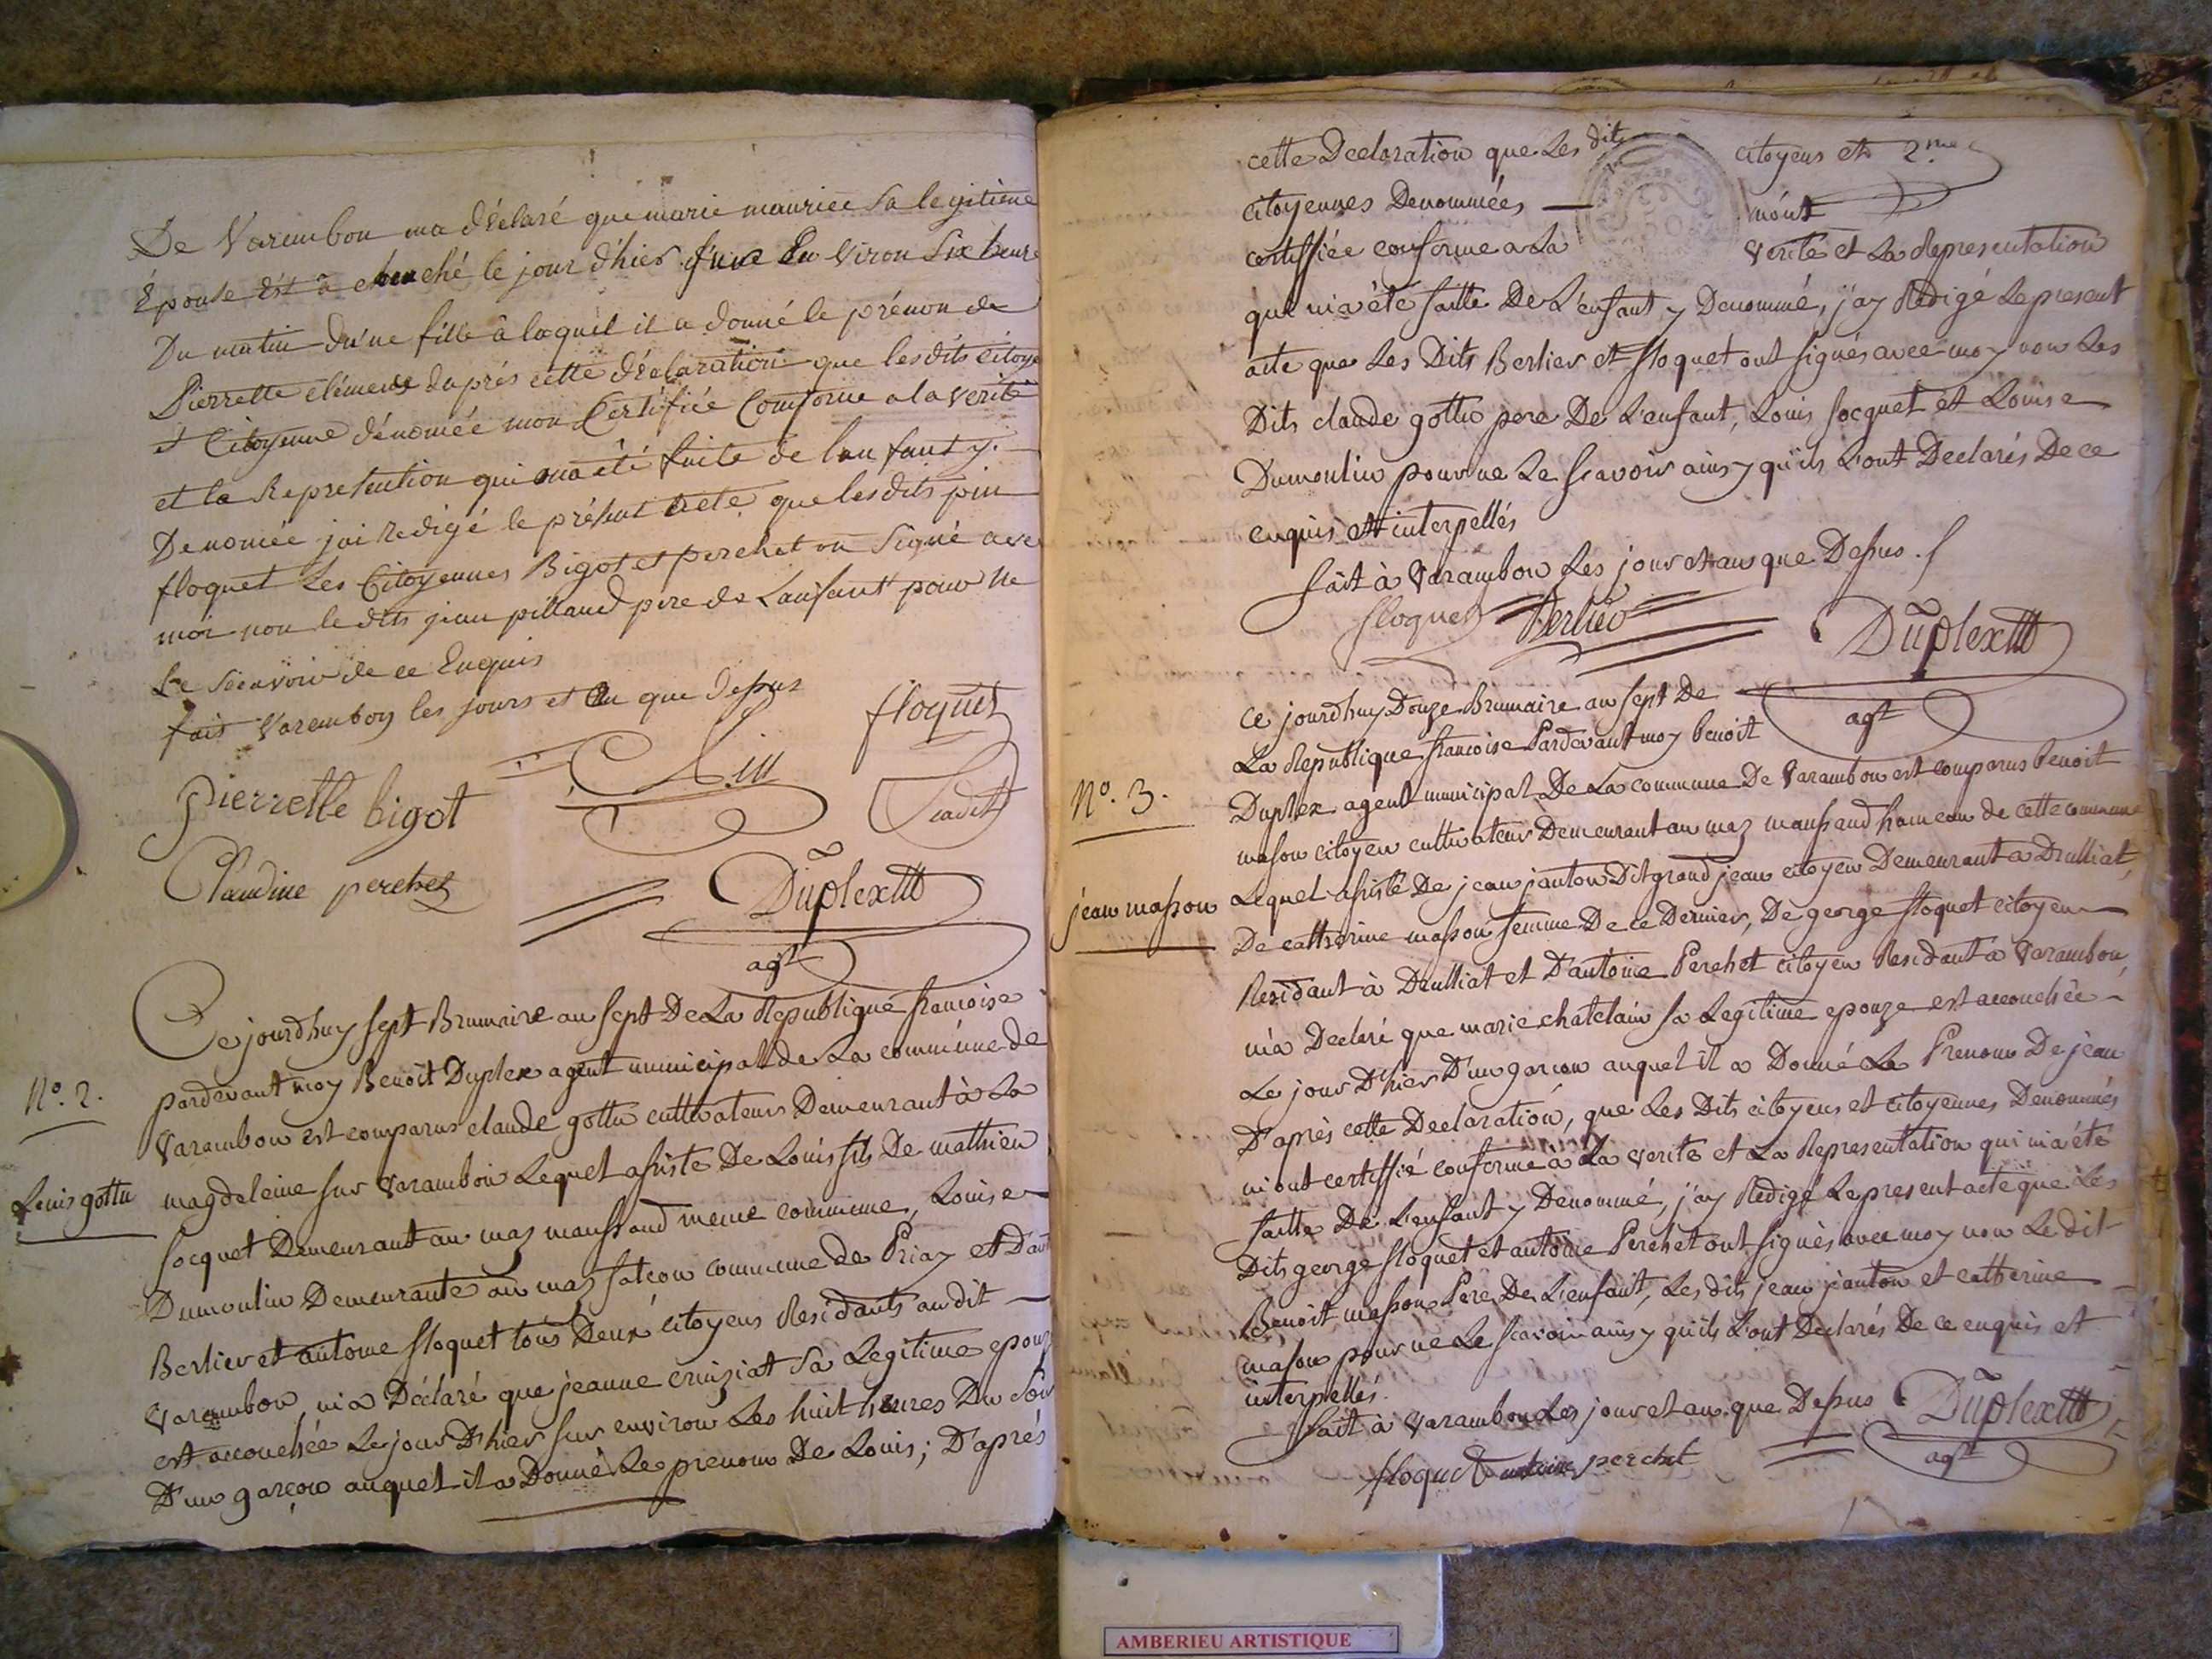 De Varembon ma déclaré que marie mauriee Sa legitime
Épouse Est â chouché le jour d'hier Environ Six heure
Du matin du'ne fille â laquel il a donné le prénom de
Pierrette clémence daprés cette déclaration que lesdits citoye
et Citoyenne dénomée mon Certifiée Comforme a la verité
et la Represention qui ma été faite de lanfant y.
Denomée jai redigé le présent acte que lesdits pin
floquet Les Citoyennes Bigot et perchet on Signé avec
moi non le dits jean pillaud pere de Lanfant pour ne
Le Scavoir de ce Enquis
fait Varembon les jours et An que Desus
floquet
Pin
pierrette bigot
Claudine perchet
Duplex
agt
Ce jourdhuy sept Brumaire an sept De La Republique francoise
N.º 2.
pardevant moy Benoit Duplex agent municipal de La commune de
Varambon est comparus claude gottu cultivateur Demeurant à La
Louis gottu
magdeleine sur Varambon Lequel assisté De Louis fils De mathieu
Socquet Demeurant au maz maussaud meme commune, Louise
Dumoulin Demeurante au maz fatcon commune de Priay et D'ant
Berlier et antoine floquet tous Deux citoyens Residants audit
Varambon m'a Déclaré que jeanne cruiziat Sa Legitime epouze
est accouchée Le jour D'hier sur environ Les huit heures Du Soir
D'un garçon auquel il a Donné Le prenom De Louis; D'aprés
cette Declaration que Les dits citoyens et 2.me
citoyennes Denommées m'ont
certiffiée conforme a La verité et La Representation
qui m'a été faitte De L'enfant y Denommé, j'ay Redigé Le present
acte que Les Dits Berlier et floquet ont signés avec moy non Les
Dits claude gottu pere De L'enfant, Louis Socquet et Louise
Dumoulin pour ne Le scavoir ainsy qu'ils L'ont Declarés De ce
enquis et interpellés
fait à Varambon Les jour et an que Dessus.
floquet Berlier
Duplex
agt
Ce jourdhuy Douze Brumaire an sept De
La Republique francoise Pardevant moy benoit
N.º 3.
Duplex agent municipal De La commune De Varambon est comparus benoit
masson citoyen cultivateur Demeurant au maz maussaud hameau de cette commune
jean masson
Lequel assisté De jean janton Dit grand jean citoyen Demeurant a Druilliat,
De catherine masson femme De ce Dernier, De george floquet citoyen
Residant à Druilliat et D'antoine Perchet citoyen Residant a Varambon,
m'a Declaré que marie chatelain sa Legitime epouze est accouchée
Le jour D'hier D'un garcon auquel il a Donné Le Prenom De jean
D'après cette Declaration, que Les Dits citoyens et citoyennes Denommés
m'ont certiffié conforme à La verité et La Representation qui m'a été
faitte De L'enfant y Denommé, j'ay Redigé Le present acte que Les
Dits george floquet et antoine Perchet ont signés avec moy non Le dit
Benoit masson Pere De L'enfant, Les dits jean janton et catherine
masson pour ne Le scavoir ainsy qu'ils L'ont Declarés De ce enquis et
interpellés.
fait à Varambon Les jour et an que Dessus
Duplex
agt
floquet antoine perchet
AMBERIEU ARTISTIQUE